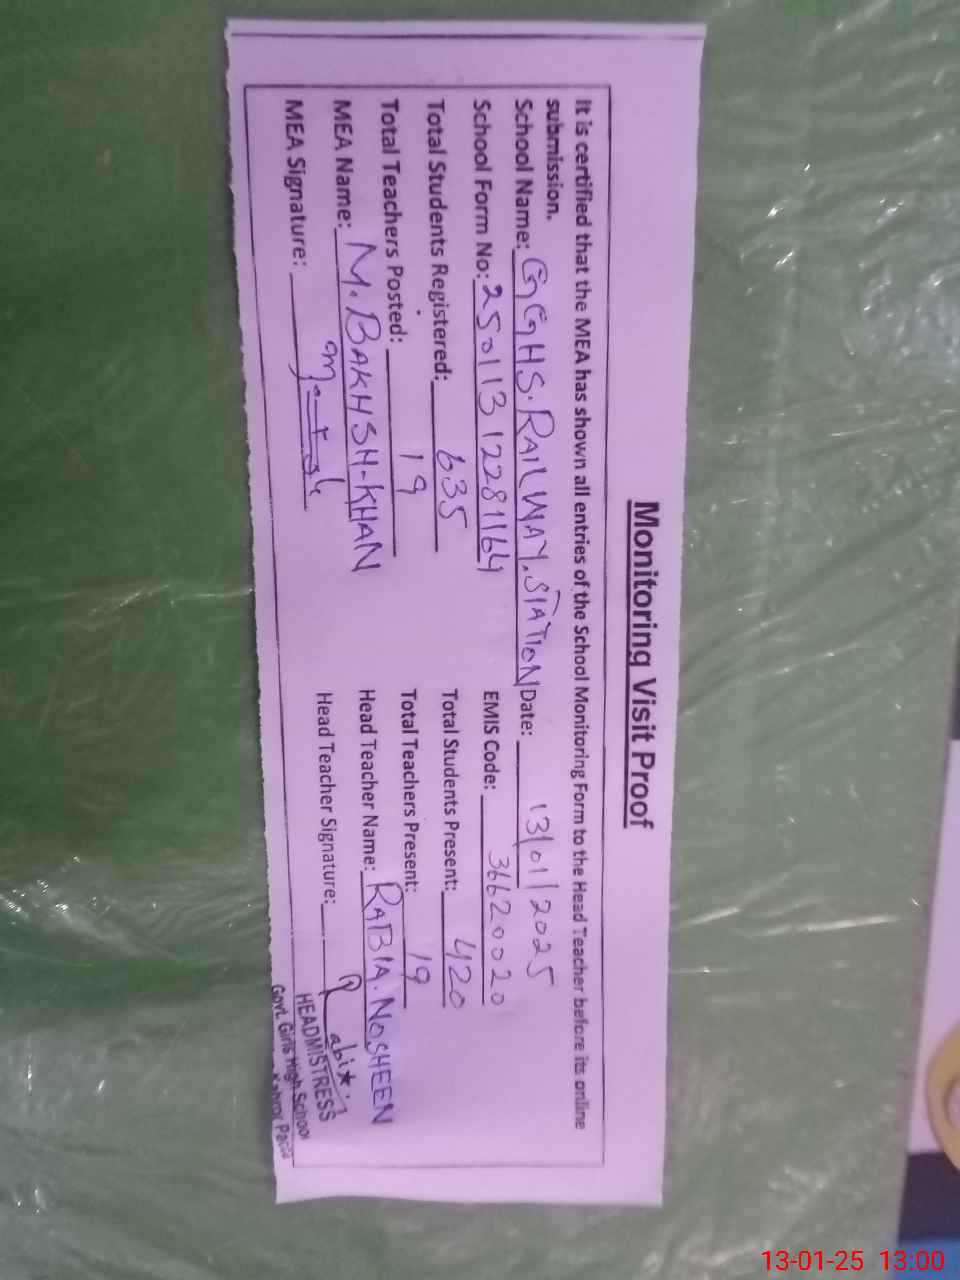 Monitoring Visit Proof
It is certified that the MEA has shown all entries of the School Monitoring Form to the Head Teacher before its online
submission.
School Name: GGHS. RAILWAY. STATION Date: 13/01/2025
School Form No: 250113 12281164 EMIS Code: 36620020
Total Students Registered: 635 Total Students Present: 420
Total Teachers Posted: 19 Total Teachers Present: 19
MEA Name: M. BAKHSH-KHAN Head Teacher Name: RABIA. NOSHEEN
MEA Signature: Head Teacher Signature: Rabia
HEADMISTRESS
Govt. Girls High School
Kahror Pacca
13-01-25 13:00